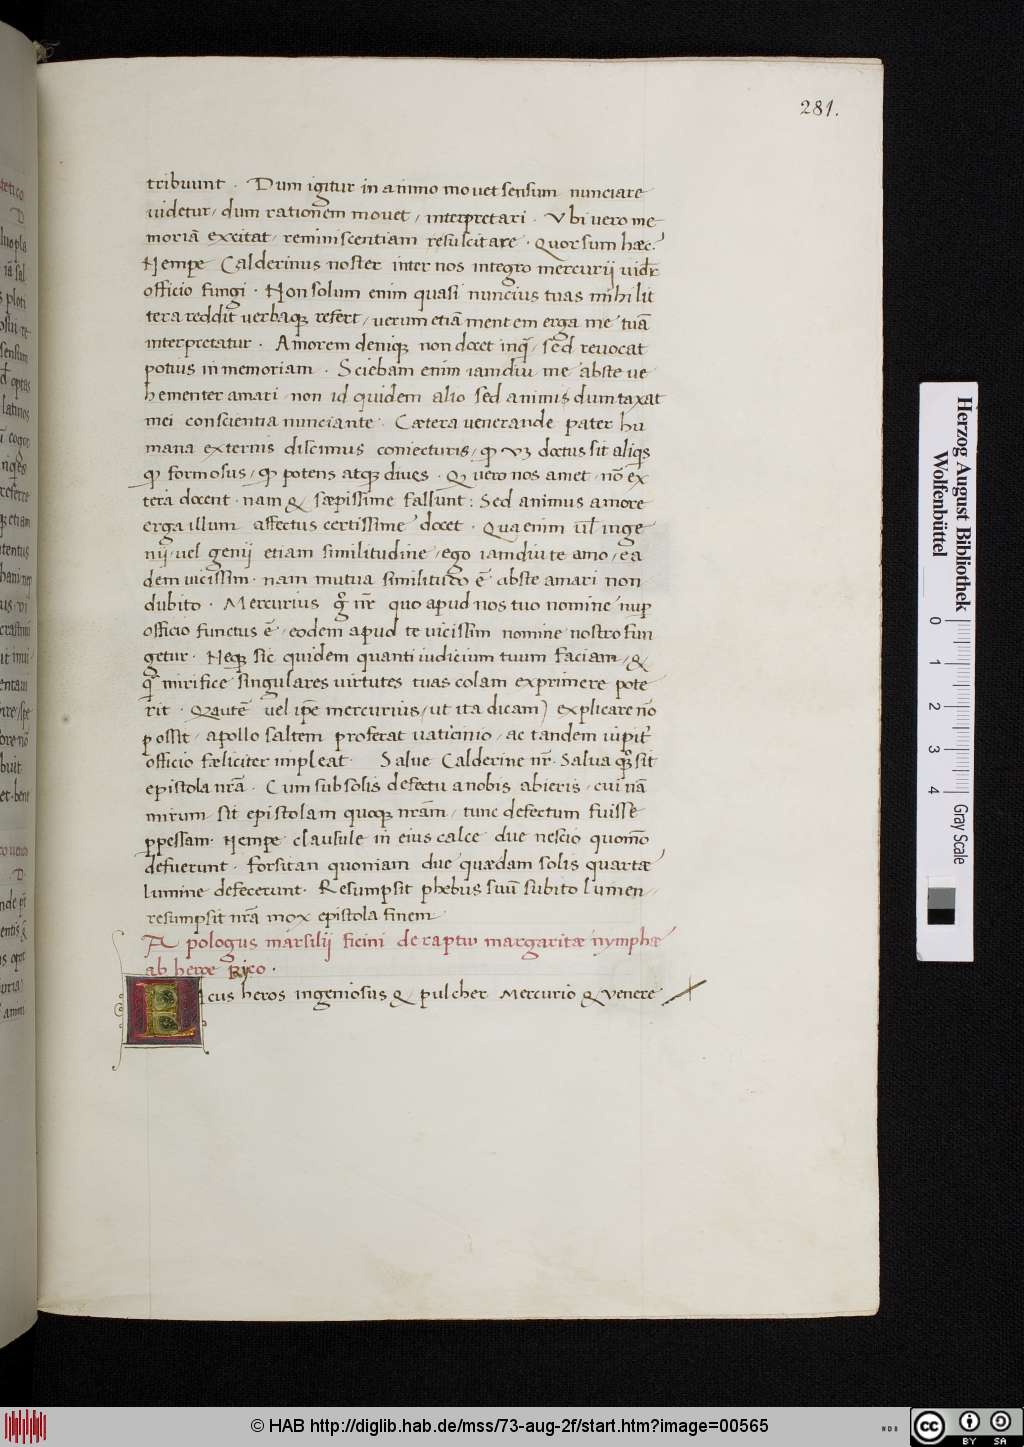 281.
tribuunt . Dum igitur in animo mouet sensum nunciare
uidetur, dum rationem mouet, interpretari . Vbi uero me
moriā excitat, reminiscentiam resuscitare . Quorsum hæc?
Nempe Calderinus noster inter nos integro mercurii uidr̄
officio fungi . Non solum enim quasi nuncius tuas mihi lit
tera reddit uerbaqꝫ refert, uerum etiā mentem erga me tuā
interpretatur . Amorem deniqꝫ non docet inq̄, sed reuocat
potius in memoriam . Sciebam enim iamdiu me abs te ue
hementer amari, non id quidem alio sed animis dumtaxat
mei conscientia nunciante . Cætera uenerande pater hu
mana externis discimus coniecturis, ꝙ uꝫ doctus sit aliqs
ꝙ formosus, ꝙ potens atqꝫ diues . Ꝙ uero nos amet, nō ex
tera docent . nam & sæpissime fallunt : Sed animus amore
erga illum affectus certissime docet . Qua enim ul̄ inge
nij, uel genii etiam similitudine, ego iamdiu te amo, ea
dem uicissim . nam mutua similitudo ē abs te amari non
dubito . Mercurius gͦ nr̄ quo apud nos tuo nomine nup
officio functus ē, eodem apud te uicissim nomine nostro fun
getur . Neqꝫ sic quidem quanti iudicium tuum faciam, &
q̄ mirifice singulares uirtutes tuas colam exprimere pote
rit . autē uel ip̄e mercurius, ut ita dicam) explicare nō
possit, apollo saltem proferat uaticinio, ac tandem iupit̄
officio fæliciter impleat . Salue Calderine nr̄ . Salua sit
epistola nr̄ā . Cum sub solis defectu a nobis abieris, cui nā
mirum sit epistolam quoqꝫ nrām, tunc defectum fuisse
ꝑpessam . Nempe clausule in eius calce due nescio quomō
defuerunt . Forsitan quoniam due quædam solis quartæ
lumine defecerunt . Resumpsit phebus suū subito lumen,
resumpsit nr̄ā mox epistola finem
Apologus marsilij ficini de raptu margaritæ nymphæ
ab heroe Rico .
icus heros ingeniosus & pulcher Mercurio & uenere
Herzog August Bibliothek
Wolfenbüttel
0 1 2 3 4
Gray Scale
© HAB http://diglib.hab.de/mss/73-aug-2f/start.htm?image=00565
WDB
cc BY SA